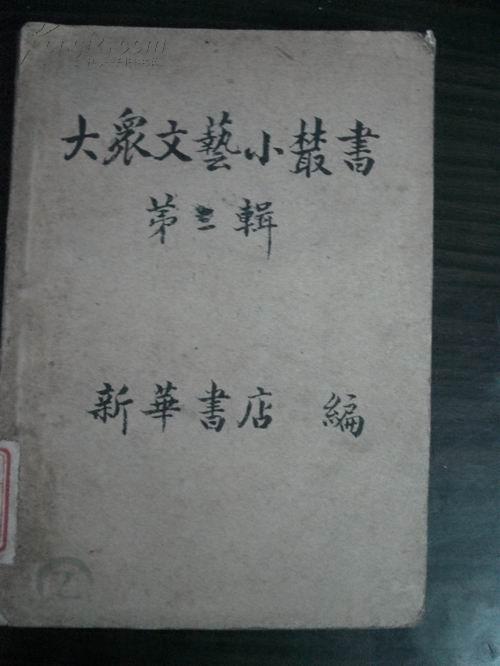 大衆文藝小叢書
第三輯
新華書店 編